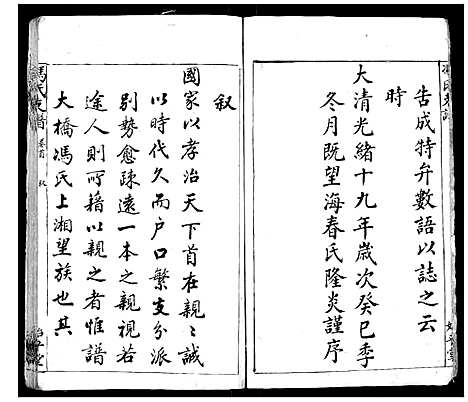 告成特弁數語以誌之云
時
大清光緒十九年歲次癸巳季
冬月既望海春氏隆炎謹序
叙
國家以孝治天下首在親親誠
以時代久而户口繁支分派
别勢愈疎遠一本之親視若
途人則所藉以親之者惟譜
大橋馮氏上湘望族也其
馮氏支譜
卷首
叙